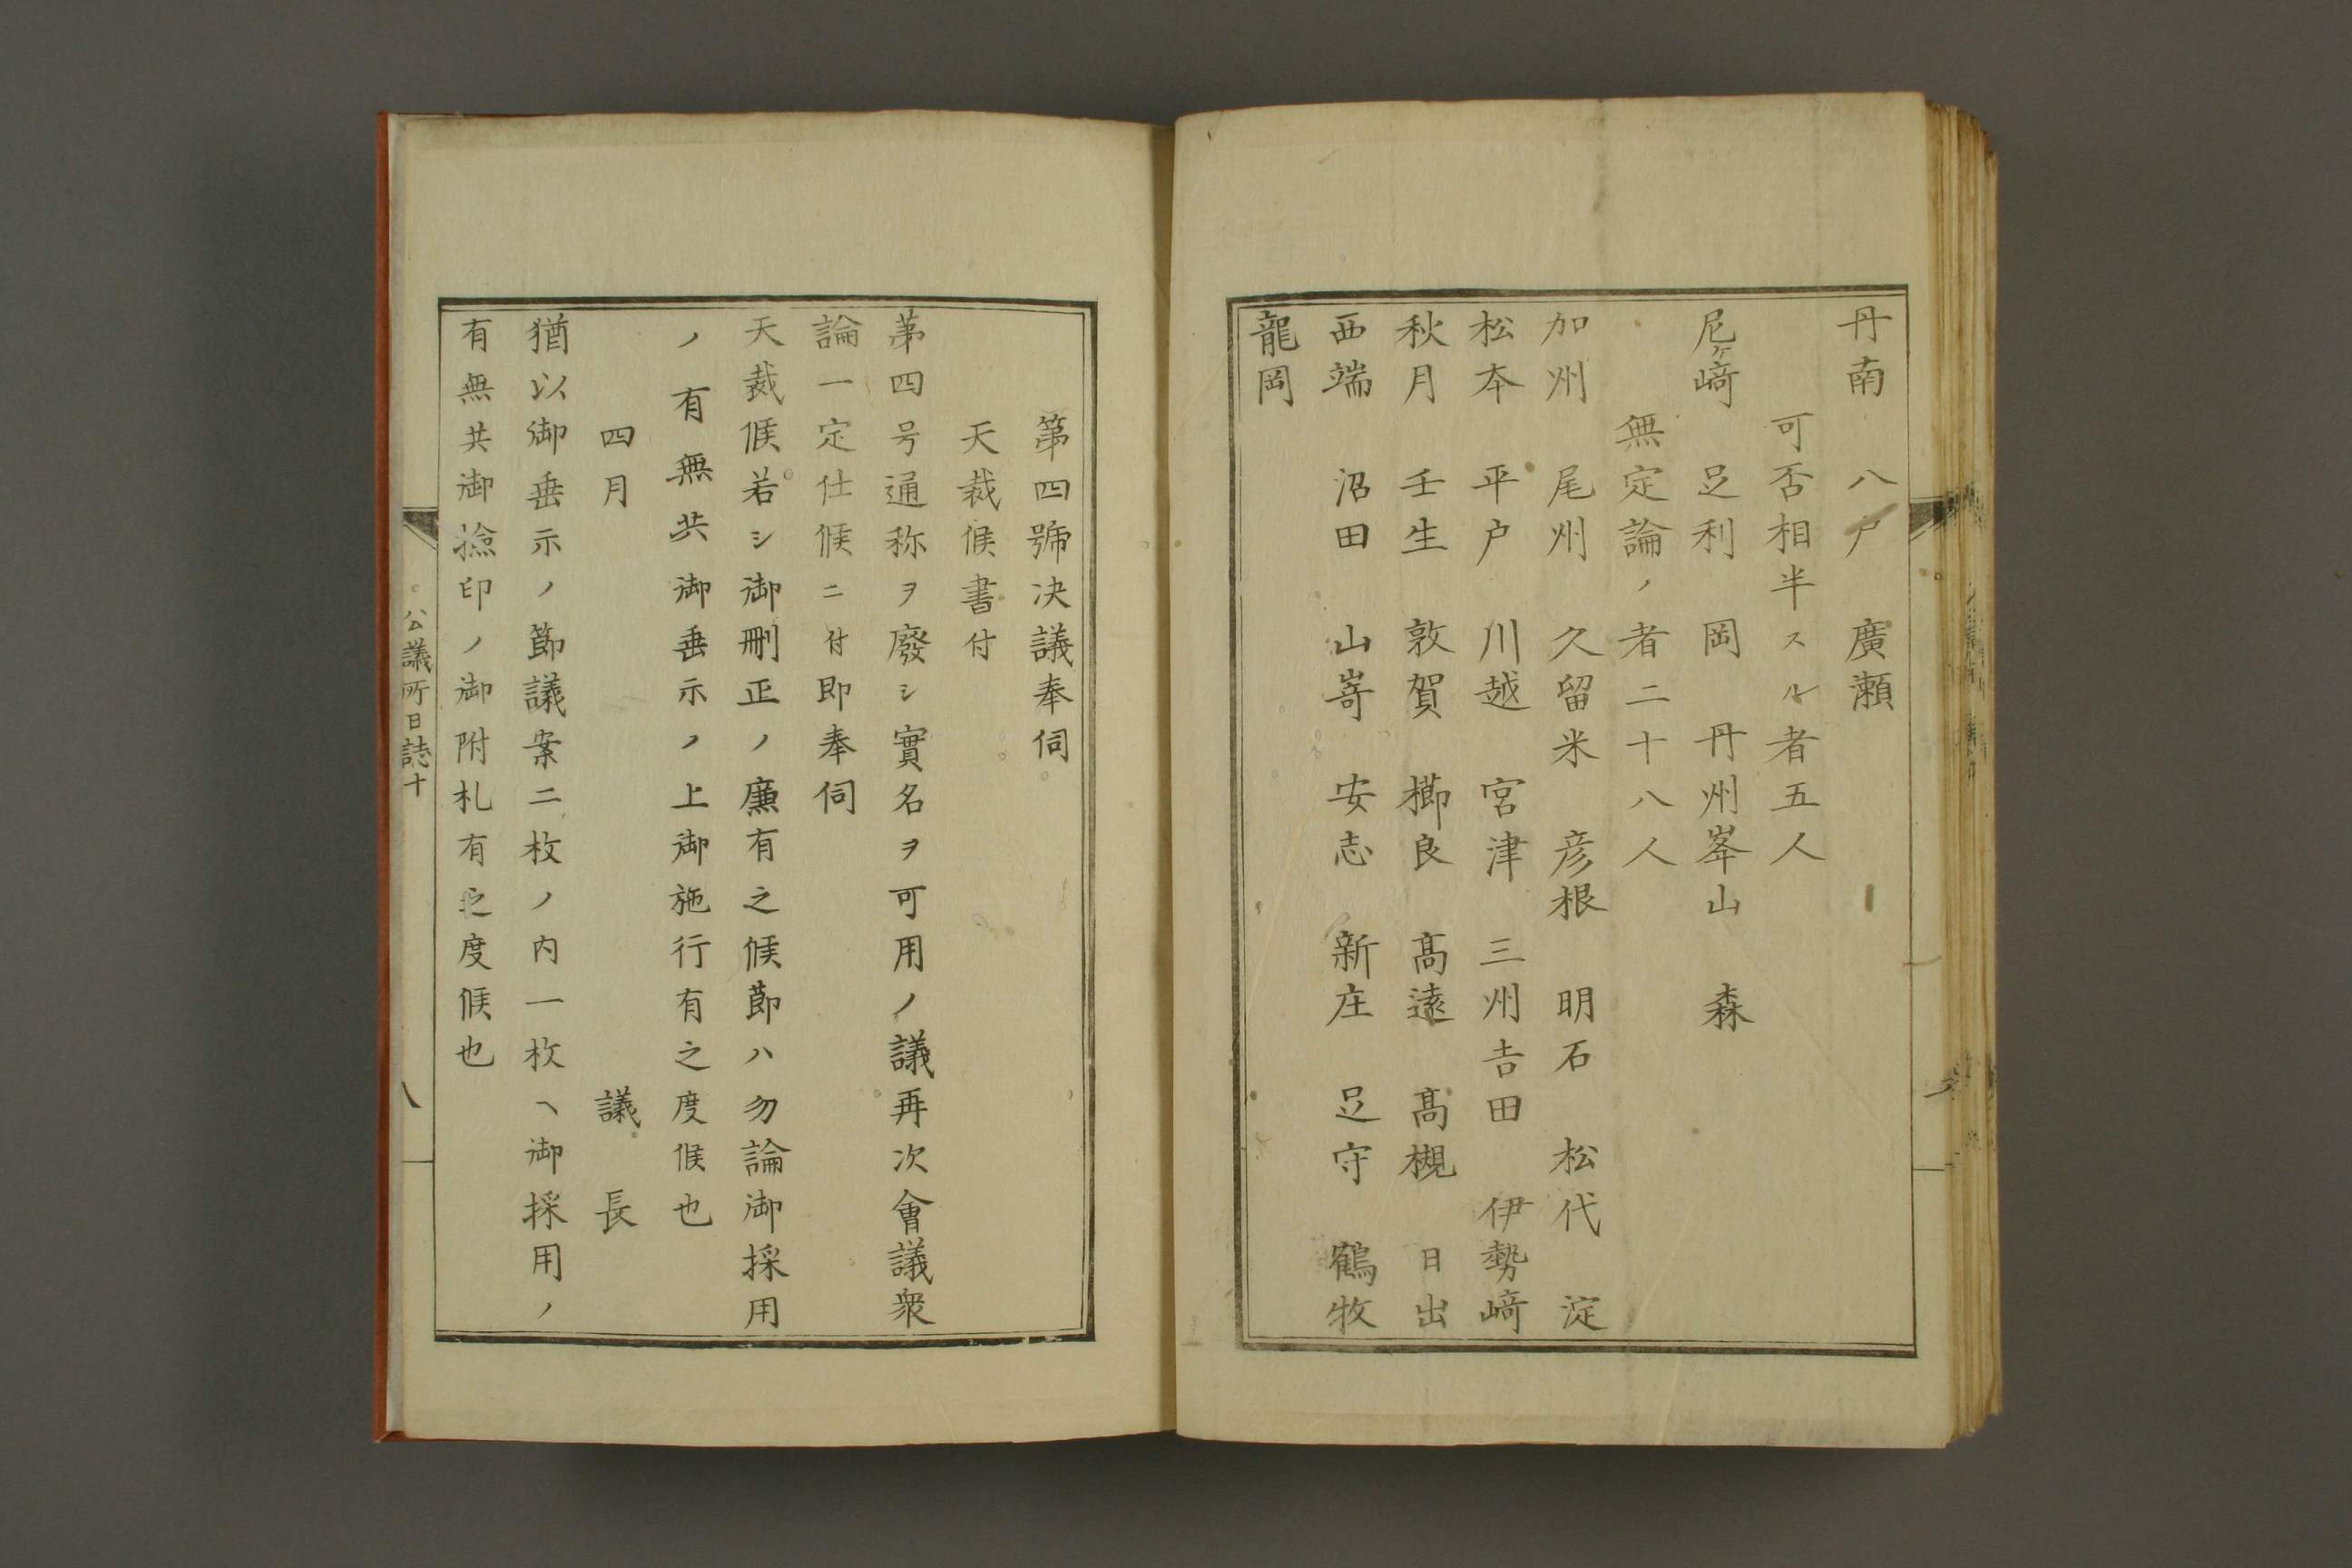 丹南　八戸　廣瀬
可否相半スル者五人
尼ヶ﨑　足利　岡　丹州峯山　森
無定論ノ者二十八人
加州　尾州　久留米　彦根　明石　松代　淀
松本　平戸　川越　宮津　三州吉田　伊勢﨑
秋月　壬生　敦賀　櫛良　髙遠　髙槻　日出
西端　沼田　山嵜　安志　新庄　足守　鶴牧
龍岡
第四號决議奉伺
天裁候書付
苐四号通称ヲ廢シ實名ヲ可用ノ議再次會議衆
論一定仕候ニ付即奉伺
天裁候若シ御刪正ノ廉有之候節ハ勿論御採用
ノ有無共御垂示ノ上御施行有之度候也
四月
議長
猶以御垂示ノ節議案二枚ノ内一枚ヘ御採用ノ
有無共御撿印ノ御附札有之度候也
公議所日誌十
八